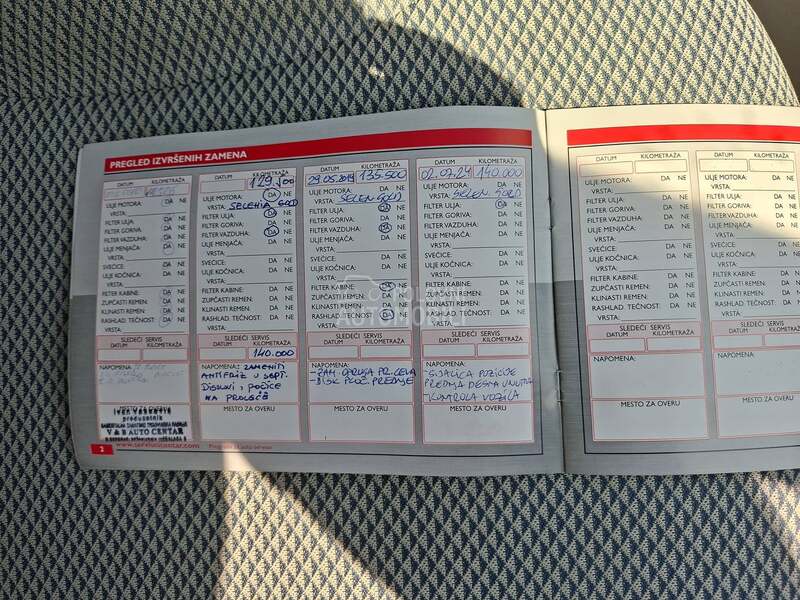 PREGLED IZVRŠENIH ZAMENA
DATUM KILOMETRAŽA
ULJE MOTORA: DA NE
VRSTA:
FILTER ULJA: DA NE
FILTER GORIVA: DA NE
FILTER VAZDUHA: DA NE
ULJE MENJAČA: DA NE
VRSTA:
SVEĆICE: DA NE
ULJE KOČNICA: DA NE
VRSTA:
FILTER KABINE: DA NE
ZUPČASTI REMEN: DA NE
KLINASTI REMEN: DA NE
RASHLAD. TEČNOST: DA NE
VRSTA:
SLEDEĆI SERVIS
DATUM KILOMETRAŽA
NAPOMENA:
V & B AUTO CENTAR
2
www.servisnicentar.com
DATUM KILOMETRAŽA
129.100
ULJE MOTORA: DA NE
VRSTA: SELENIA GOLD
FILTER ULJA: DA NE
FILTER GORIVA: DA NE
FILTER VAZDUHA: DA NE
ULJE MENJAČA: DA NE
VRSTA:
SVEĆICE: DA NE
ULJE KOČNICA: DA NE
VRSTA:
FILTER KABINE: DA NE
ZUPČASTI REMEN: DA NE
KLINASTI REMEN: DA NE
RASHLAD. TEČNOST: DA NE
VRSTA:
SLEDEĆI SERVIS
DATUM KILOMETRAŽA
140.000
NAPOMENA: ZAMENITI
ANTIFRIZ U SEPT.
DISKOVI, PLOČICE
NA PROLEĆE
DATUM KILOMETRAŽA
29.05.2019 135.500
ULJE MOTORA: DA NE
VRSTA: SELEN GOLD
FILTER ULJA: DA NE
FILTER GORIVA: DA NE
FILTER VAZDUHA: DA NE
ULJE MENJAČA: DA NE
VRSTA:
SVEĆICE: DA NE
ULJE KOČNICA: DA NE
VRSTA:
FILTER KABINE: DA NE
ZUPČASTI REMEN: DA NE
KLINASTI REMEN: DA NE
RASHLAD. TEČNOST: DA NE
VRSTA:
SLEDEĆI SERVIS
DATUM KILOMETRAŽA
NAPOMENA:
- ZAM. OPRUGA PR. LEVA
- DISK PLOČ. PREDNJE
MESTO ZA OVERU
DATUM KILOMETRAŽA
02.07.24 140.000
ULJE MOTORA: DA NE
VRSTA: SELEN GOLD
FILTER ULJA: DA NE
FILTER GORIVA: DA NE
FILTER VAZDUHA: DA NE
ULJE MENJAČA: DA NE
VRSTA:
SVEĆICE: DA NE
ULJE KOČNICA: DA NE
VRSTA:
FILTER KABINE: DA NE
ZUPČASTI REMEN: DA NE
KLINASTI REMEN: DA NE
RASHLAD. TEČNOST: DA NE
VRSTA:
SLEDEĆI SERVIS
DATUM KILOMETRAŽA
NAPOMENA:
- SIJALICA POZICIJE
PREDNJA DESNA
- KONTROLA VOZILA
MESTO ZA OVERU
DATUM KILOMETRAŽA
ULJE MOTORA: DA NE
VRSTA:
FILTER ULJA: DA NE
FILTER GORIVA: DA NE
FILTER VAZDUHA: DA NE
ULJE MENJAČA: DA NE
VRSTA:
SVEĆICE: DA NE
ULJE KOČNICA: DA NE
VRSTA:
FILTER KABINE: DA NE
ZUPČASTI REMEN: DA NE
KLINASTI REMEN: DA NE
RASHLAD. TEČNOST: DA NE
VRSTA:
SLEDEĆI SERVIS
DATUM KILOMETRAŽA
NAPOMENA:
MESTO ZA OVERU
DATUM KILOMETRAŽA
ULJE MOTORA: DA
VRSTA:
FILTER ULJA: DA
FILTER GORIVA: DA
FILTER VAZDUHA: DA
ULJE MENJAČA: DA
VRSTA:
SVEĆICE: DA
ULJE KOČNICA: DA
VRSTA:
FILTER KABINE: DA
ZUPČASTI REMEN: DA
KLINASTI REMEN: DA
RASHLAD. TEČNOST: DA
VRSTA:
SLEDEĆI SERVIS
DATUM KILOMETRAŽA
NAPOMENA:
MESTO ZA OVERU